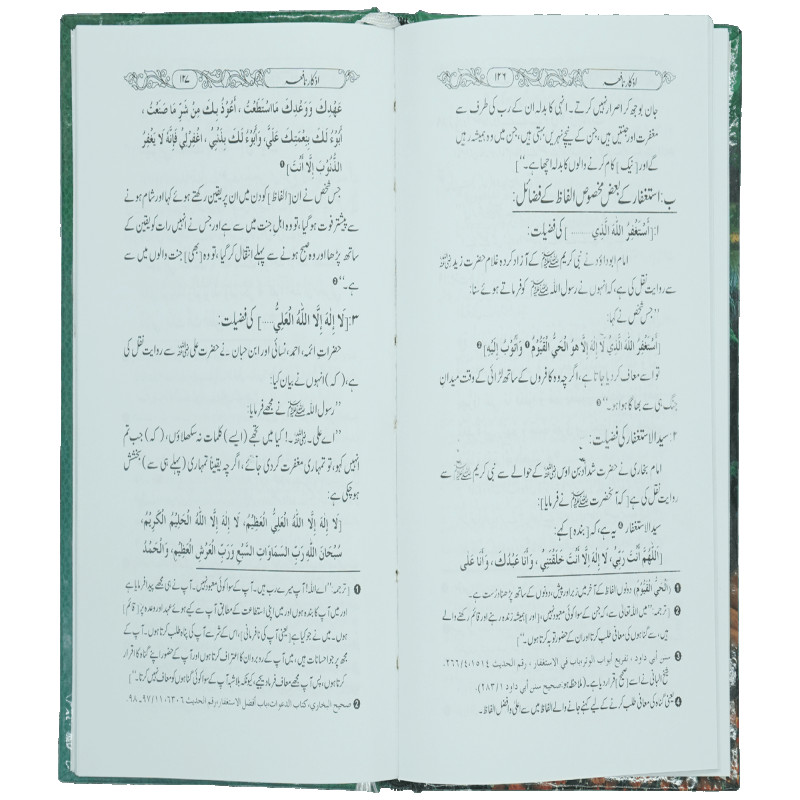 اذکار نافعہ ۱۲۶
جان بوجھ کر اصرار نہیں کرتے۔ انہی کا بدلہ ان کے رب کی طرف سے
مغفرت اور جنتیں ہیں، جن کے نیچے نہریں بہتی ہیں، جن میں وہ ہمیشہ رہیں
گے اور [نیک] کام کرنے والوں کا بدلہ اچھا ہے۔“]
ب: استغفار کے بعض مخصوص الفاظ کے فضائل:
۱: [أَسْتَغْفِرُ اللّٰهَ الَّذِي ..........] کی فضیلت:
امام ابو داؤد نے نبی کریم ﷺ کے آزاد کردہ غلام حضرت زید رضی اللہ عنہ
سے روایت نقل کی ہے، کہ انہوں نے رسول اللہ ﷺ کو فرماتے ہوئے سنا:
”جس شخص نے کہا:
[أَسْتَغْفِرُ اللّٰهَ الَّذِي لَا إِلٰهَ إِلَّا هُوَ الْحَيُّ الْقَيُّوْمُ ❶ وَأَتُوْبُ إِلَيْهِ] ❷
تو اسے معاف کر دیا جاتا ہے، اگرچہ وہ کافروں کے ساتھ لڑائی کے وقت میدان
جنگ ہی سے بھاگا ہوا ہو۔“ ❸
۲: سید الاستغفار کی فضیلت:
امام بخاری نے حضرت شداد بن اوس رضی اللہ عنہ کے حوالے سے نبی کریم ﷺ سے
روایت نقل کی ہے [کہ آنحضرت ﷺ نے فرمایا]:
سید الاستغفار ❹ یہ ہے، کہ [بندہ] کہے:
[اَللّٰهُمَّ أَنْتَ رَبِّيْ، لَا إِلٰهَ إِلَّا أَنْتَ خَلَقْتَنِيْ، وَأَنَا عَبْدُكَ، وَأَنَا عَلٰى
❶ (الْحَيُّ الْقَيُّوْمُ) دونوں الفاظ کے آخر میں زبر اور پیش، دونوں کے ساتھ پڑھنا درست ہے۔
❷ [ترجمہ: ”میں اللہ تعالیٰ سے، کہ جن کے سوا کوئی معبود نہیں، [اور] ہمیشہ زندہ رہنے اور قائم رکھنے والے
ہیں، سے گناہوں کی معافی طلب کرتا اور ان کے حضور توبہ کرتا ہوں۔“]
❸ سنن أبي داود، تفريع أبواب الوتر، باب في الاستغفار، رقم الحديث ١٥١٤، ٤/٢٦٦.
شیخ البانی نے اسے [صحیح] قرار دیا ہے۔ (ملاحظہ ہو: صحیح سنن أبي داود ١/٢٨٣)
❹ یعنی گناہ کی معافی طلب کرنے کے لیے کہے جانے والے الفاظ میں سے اعلیٰ و افضل الفاظ۔
اذکار نافعہ ۱۲۷
عَهْدِكَ وَوَعْدِكَ مَا اسْتَطَعْتُ، أَعُوْذُ بِكَ مِنْ شَرِّ مَا صَنَعْتُ،
أَبُوْءُ لَكَ بِنِعْمَتِكَ عَلَيَّ، وَأَبُوْءُ لَكَ بِذَنْبِيْ، اغْفِرْلِيْ فَإِنَّهُ لَا يَغْفِرُ
الذُّنُوْبَ إِلَّا أَنْتَ] ❶
جس شخص نے ان [الفاظ] کو دن میں ان پر یقین رکھتے ہوئے کہا اور شام ہونے
سے پیشتر فوت ہو گیا، تو وہ اہل جنت میں سے ہے اور جس نے انہیں رات کو یقین کے
ساتھ پڑھا اور وہ صبح ہونے سے پہلے انتقال کر گیا، تو وہ [بھی] جنت والوں میں سے
ہے۔“ ❷
۳: [لَا إِلٰهَ إِلَّا اللّٰهُ الْعَلِيُّ.....] کی فضیلت:
حضرات ائمہ، احمد، نسائی اور ابن حبان نے حضرت علی رضی اللہ عنہ سے روایت نقل کی
ہے، (کہ) انہوں نے بیان کیا:
”رسول اللہ ﷺ نے مجھے فرمایا:
”اے علی۔ رضی اللہ عنہ۔! کیا میں تجھے (ایسے) کلمات نہ سکھلاؤں، (کہ) جب تم
انہیں کہو، تو تمہاری مغفرت کر دی جائے، اگرچہ یقیناً تمہاری (پہلے ہی سے) بخشش
ہو چکی ہے:
[لَا إِلٰهَ إِلَّا اللّٰهُ الْعَلِيُّ الْعَظِيْمُ، لَا إِلٰهَ إِلَّا اللّٰهُ الْحَلِيْمُ الْكَرِيْمُ،
سُبْحَانَ اللّٰهِ رَبِّ السَّمَاوَاتِ السَّبْعِ وَرَبِّ الْعَرْشِ الْعَظِيْمِ، وَالْحَمْدُ
❶ [ترجمہ: ”اے اللہ! آپ میرے رب ہیں۔ آپ کے سوا کوئی معبود نہیں۔ آپ ہی نے مجھے پیدا فرمایا ہے
اور میں آپ کا بندہ ہوں اور میں اپنی استطاعت کے مطابق آپ سے کیے ہوئے عہد اور وعدہ پر [قائم]
ہوں۔ میں نے جو کیا ہے [یعنی آپ کی نافرمانی]، اس کے شر سے آپ کی پناہ طلب کرتا ہوں۔ آپ کے
مجھ پر جو احسانات ہیں، میں آپ کے روبرو ان کا اعتراف کرتا ہوں اور آپ کے حضور اپنے گناہ کا اقرار
کرتا ہوں، پس آپ مجھے معاف فرما دیجیے، کیونکہ بلاشبہ آپ کے سوا کوئی گناہوں کو معاف نہیں کرتا۔“]
❷ صحيح البخاري، كتاب الدعوات، باب أفضل الاستغفار، رقم الحديث ٦٣٠٦، ١١/٩٧-٩٨.